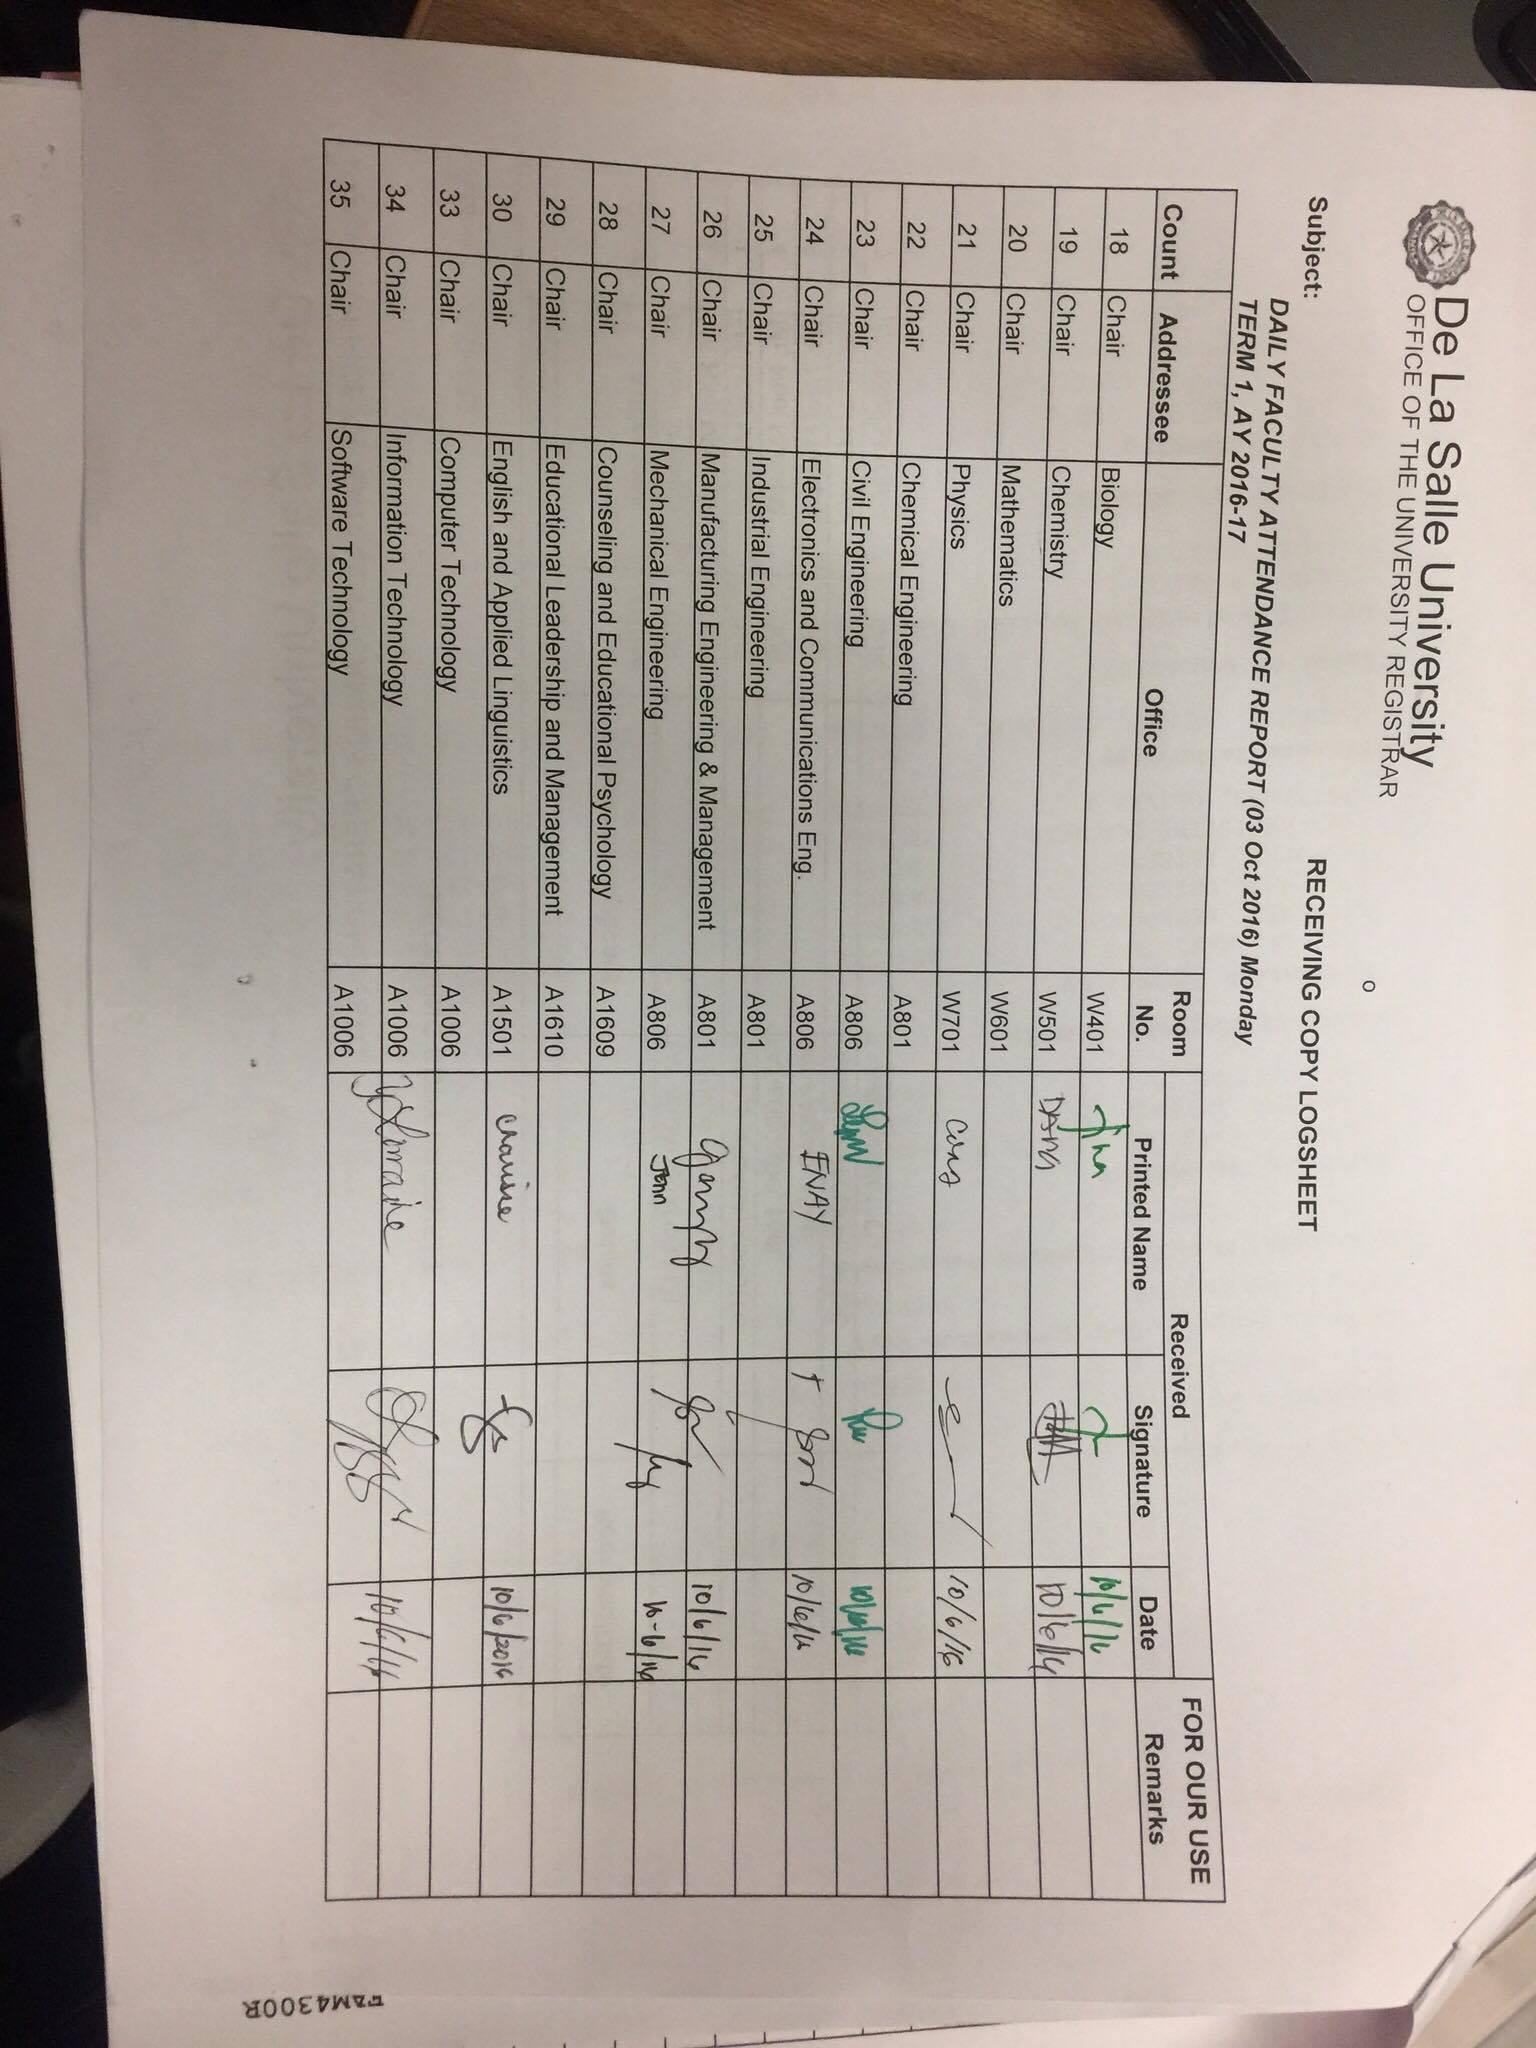 De La Salle University
OFFICE OF THE UNIVERSITY REGISTRAR
o
Subject: RECEIVING COPY LOGSHEET
DAILY FACULTY ATTENDANCE REPORT (03 Oct 2016) Monday
TERM 1, AY 2016-17
Count Addressee Office Room No. Received FOR OUR USE
Printed Name Signature Date Remarks
18 Chair Biology W401 10/6/16
19 Chair Chemistry W501 DANG 10/6/16
20 Chair Mathematics W601
21 Chair Physics W701 Cong 10/6/16
22 Chair Chemical Engineering A801
23 Chair Civil Engineering A806
24 Chair Electronics and Communications Eng. A806 ENAY 10/6/16
25 Chair Industrial Engineering A801
26 Chair Manufacturing Engineering & Management A801 10/6/16
27 Chair Mechanical Engineering A806 Jenn 10-6/16
28 Chair Counseling and Educational Psychology A1609
29 Chair Educational Leadership and Management A1610
30 Chair English and Applied Linguistics A1501 Clarisse 10/6/2016
33 Chair Computer Technology A1006
34 Chair Information Technology A1006 Lorraine 10/6/16
35 Chair Software Technology A1006